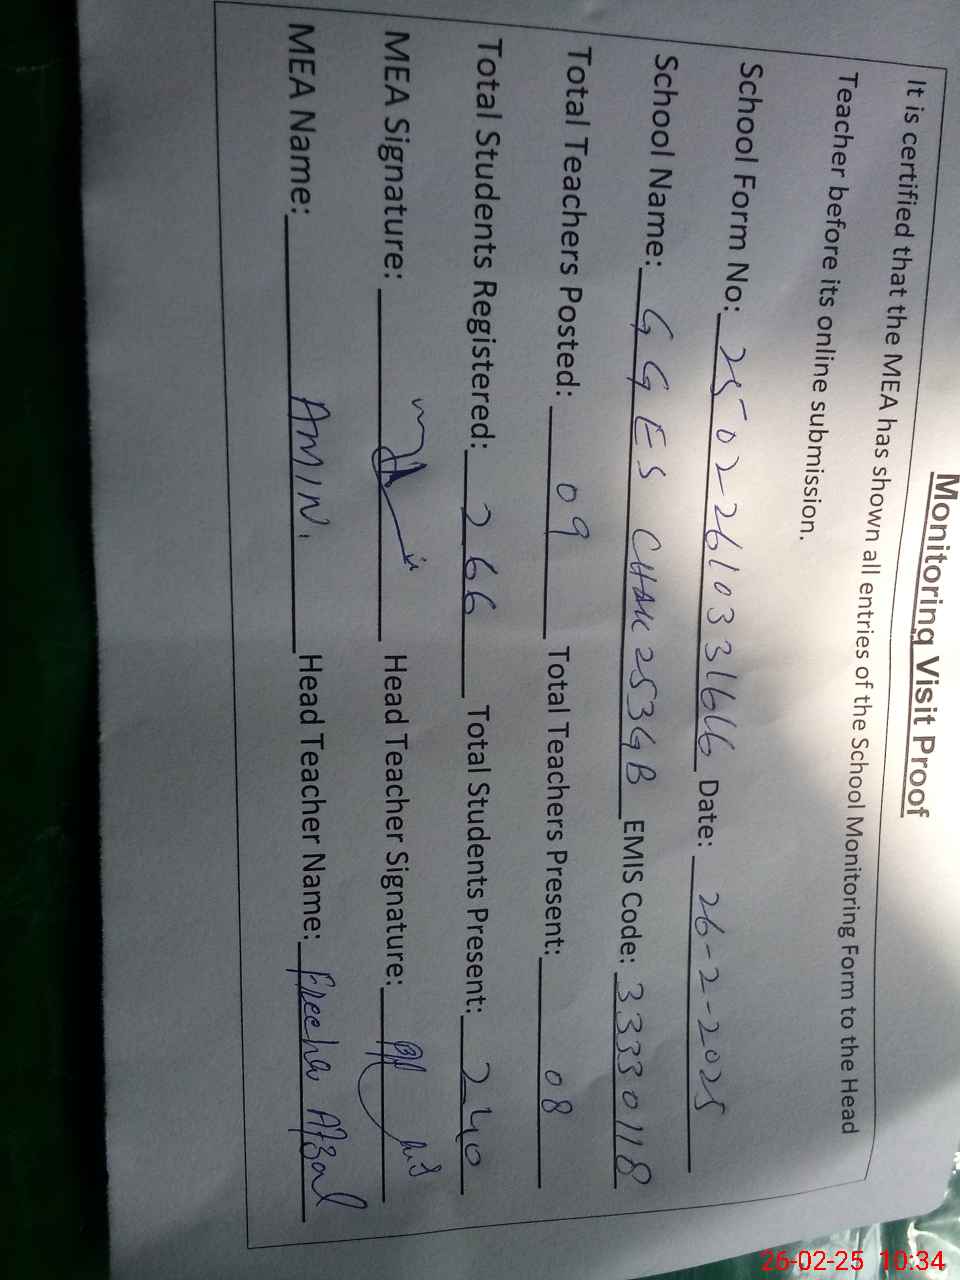 Monitoring Visit Proof
It is certified that the MEA has shown all entries of the School Monitoring Form to the Head
Teacher before its online submission.
School Form No: 25022610331616 Date: 26-2-2025
School Name: GGES CHAK 253GB EMIS Code: 33330118
Total Teachers Posted: 09 Total Teachers Present: 08
Total Students Registered: 266 Total Students Present: 240
MEA Signature: Head Teacher Signature:
MEA Name: AMIN. Head Teacher Name: Freeha Afzal
26-02-25 10:34